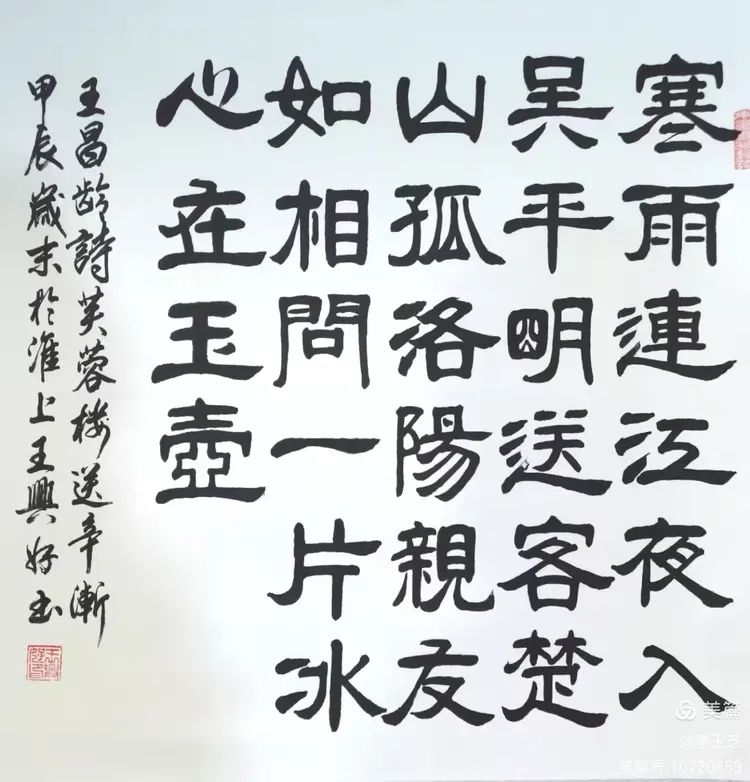 寒雨連江夜入
吳平明送客楚
山孤洛陽親友
如相問一片冰
心在玉壺
王昌齡詩芙蓉樓送辛漸
甲辰歲末於淮上王興好書
美篇
@李玉芝
美篇号:10720859